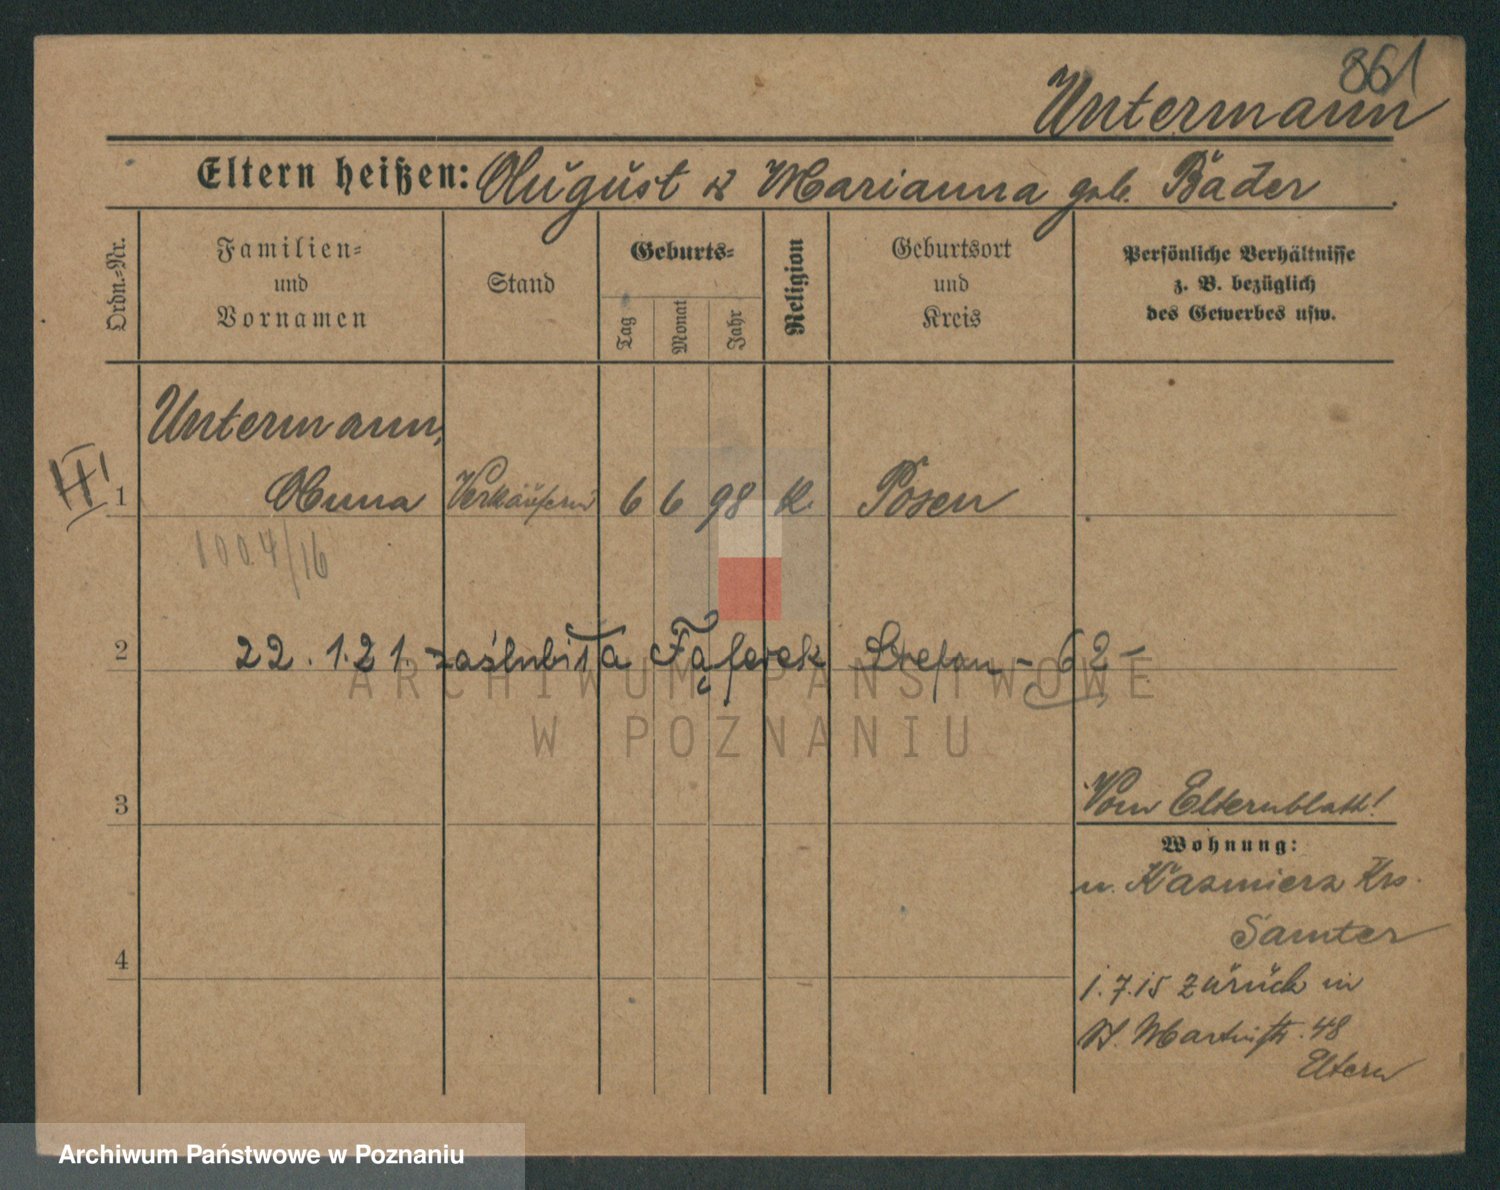 861
Untermann
Eltern heißen: August & Marianna geb. Bäder
Ordn.-Nr.
Familien-
und
Vornamen
Stand
Geburts-
Tag
Monat
Jahr
Religion
Geburtsort
und
Kreis
Persönliche Verhältnisse
z. B. bezüglich
des Gewerbes usw.
Untermann,
1 Anna Verkäuferin 6 6 98 k. Posen
1004/16
2 22.1.21. zaślubiła Stefan -62-
ARCHIWUM PAŃSTWOWE
W POZNANIU
3
Vom Elternblatt!
Wohnung:
n. Kasmierz Krs.
Samter
4
1.7.15 zurück in
St. Martinstr. 48
Eltern
Archiwum Państwowe w Poznaniu